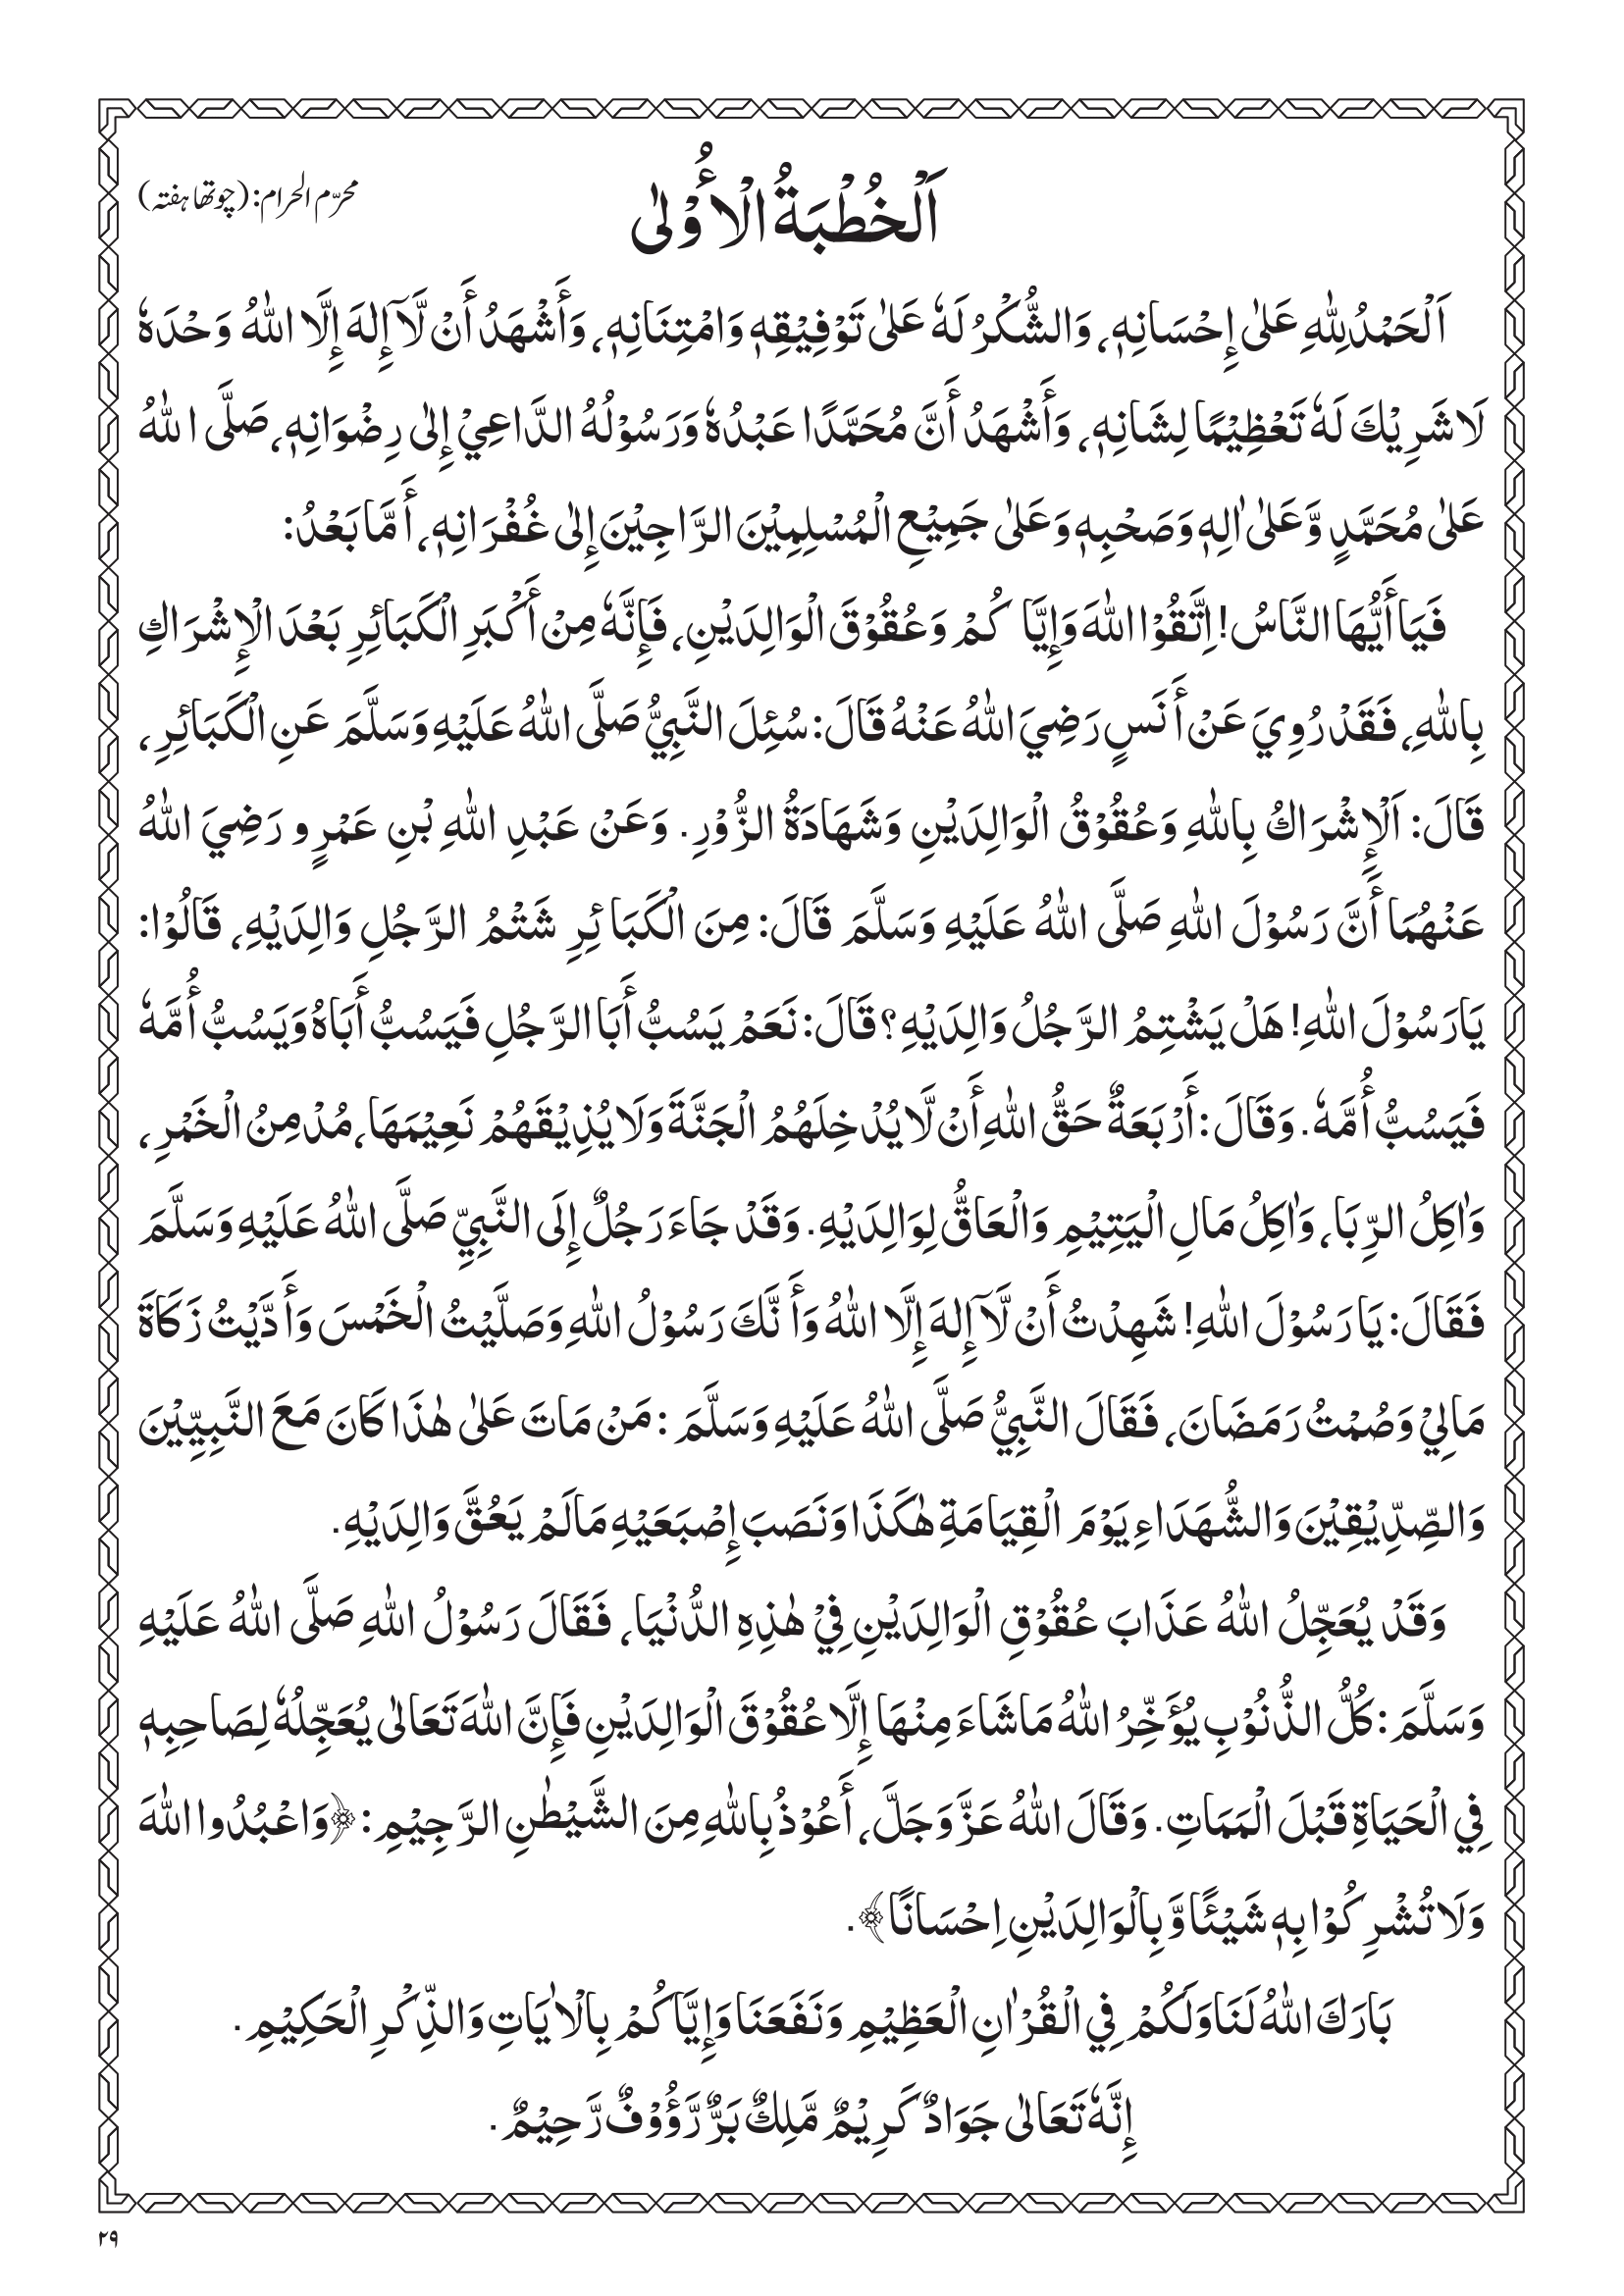 محرّم الحرام: (چوتھا ہفتہ)
اَلْخُطْبَةُ الْأُوْلٰى
اَلْحَمْدُ لِلّٰهِ عَلٰى إِحْسَانِهٖ، وَالشُّكْرُ لَهٗ عَلٰى تَوْفِيْقِهٖ وَامْتِنَانِهٖ، وَأَشْهَدُ أَنْ لَّآ إِلٰهَ إِلَّا اللّٰهُ وَحْدَهٗ
لَا شَرِيْكَ لَهٗ تَعْظِيْمًا لِشَانِهٖ، وَأَشْهَدُ أَنَّ مُحَمَّدًا عَبْدُهٗ وَرَسُوْلُهُ الدَّاعِيْ إِلٰى رِضْوَانِهٖ، صَلَّى اللّٰهُ
عَلٰى مُحَمَّدٍ وَّعَلٰى اٰلِهٖ وَصَحْبِهٖ وَعَلٰى جَمِيْعِ الْمُسْلِمِيْنَ الرَّاجِيْنَ إِلٰى غُفْرَانِهٖ، أَمَّا بَعْدُ:
فَيَا أَيُّهَا النَّاسُ! اِتَّقُوْا اللّٰهَ وَإِيَّا كُمْ وَعُقُوْقَ الْوَالِدَيْنِ، فَإِنَّهٗ مِنْ أَكْبَرِ الْكَبَائِرِ بَعْدَ الْإِشْرَاكِ
بِاللّٰهِ، فَقَدْ رُوِيَ عَنْ أَنَسٍ رَضِيَ اللّٰهُ عَنْهُ قَالَ: سُئِلَ النَّبِيُّ صَلَّى اللّٰهُ عَلَيْهِ وَسَلَّمَ عَنِ الْكَبَائِرِ،
قَالَ: اَلْإِشْرَاكُ بِاللّٰهِ وَعُقُوْقُ الْوَالِدَيْنِ وَشَهَادَةُ الزُّوْرِ. وَعَنْ عَبْدِ اللّٰهِ بْنِ عَمْرٍو رَضِيَ اللّٰهُ
عَنْهُمَا أَنَّ رَسُوْلَ اللّٰهِ صَلَّى اللّٰهُ عَلَيْهِ وَسَلَّمَ قَالَ: مِنَ الْكَبَائِرِ شَتْمُ الرَّجُلِ وَالِدَيْهِ، قَالُوْا:
يَارَسُوْلَ اللّٰهِ! هَلْ يَشْتِمُ الرَّجُلُ وَالِدَيْهِ؟ قَالَ: نَعَمْ يَسُبُّ أَبَا الرَّجُلِ فَيَسُبُّ أَبَاهُ وَيَسُبُّ أُمَّهٗ
فَيَسُبُّ أُمَّهٗ. وَقَالَ: أَرْبَعَةٌ حَقُّ اللّٰهِ أَنْ لَّا يُدْخِلَهُمُ الْجَنَّةَ وَلَا يُذِيْقَهُمْ نَعِيْمَهَا، مُدْمِنُ الْخَمْرِ،
وَاٰكِلُ الرِّبَا، وَاٰكِلُ مَالِ الْيَتِيْمِ وَالْعَاقُّ لِوَالِدَيْهِ. وَقَدْ جَاءَ رَجُلٌ إِلَى النَّبِيِّ صَلَّى اللّٰهُ عَلَيْهِ وَسَلَّمَ
فَقَالَ: يَا رَسُوْلَ اللّٰهِ! شَهِدْتُ أَنْ لَّآ إِلٰهَ إِلَّا اللّٰهُ وَأَنَّكَ رَسُوْلُ اللّٰهِ وَصَلَّيْتُ الْخَمْسَ وَأَدَّيْتُ زَكَاةَ
مَالِيْ وَصُمْتُ رَمَضَانَ، فَقَالَ النَّبِيُّ صَلَّى اللّٰهُ عَلَيْهِ وَسَلَّمَ: مَنْ مَاتَ عَلٰى هٰذَا كَانَ مَعَ النَّبِيِّيْنَ
وَالصِّدِّيْقِيْنَ وَالشُّهَدَاءِ يَوْمَ الْقِيَامَةِ هٰكَذَا وَنَصَبَ إِصْبَعَيْهِ مَا لَمْ يَعُقَّ وَالِدَيْهِ.
وَقَدْ يُعَجِّلُ اللّٰهُ عَذَابَ عُقُوْقِ الْوَالِدَيْنِ فِيْ هٰذِهِ الدُّنْيَا، فَقَالَ رَسُوْلُ اللّٰهِ صَلَّى اللّٰهُ عَلَيْهِ
وَسَلَّمَ: كُلُّ الذُّنُوْبِ يُؤَخِّرُ اللّٰهُ مَا شَاءَ مِنْهَا إِلَّا عُقُوْقَ الْوَالِدَيْنِ فَإِنَّ اللّٰهَ تَعَالٰى يُعَجِّلُهٗ لِصَاحِبِهٖ
فِي الْحَيَاةِ قَبْلَ الْمَمَاتِ. وَقَالَ اللّٰهُ عَزَّ وَجَلَّ، أَعُوْذُ بِاللّٰهِ مِنَ الشَّيْطٰنِ الرَّجِيْمِ: ﴿وَاعْبُدُوا اللّٰهَ
وَلَا تُشْرِكُوْا بِهٖ شَيْئًا وَّبِالْوَالِدَيْنِ اِحْسَانًا﴾.
بَارَكَ اللّٰهُ لَنَا وَلَكُمْ فِي الْقُرْاٰنِ الْعَظِيْمِ وَنَفَعَنَا وَإِيَّاكُمْ بِالْاٰيَاتِ وَالذِّكْرِ الْحَكِيْمِ.
إِنَّهٗ تَعَالٰى جَوَادٌ كَرِيْمٌ مَّلِكٌ بَرٌّ رَّؤُوْفٌ رَّحِيْمٌ.
۲۹